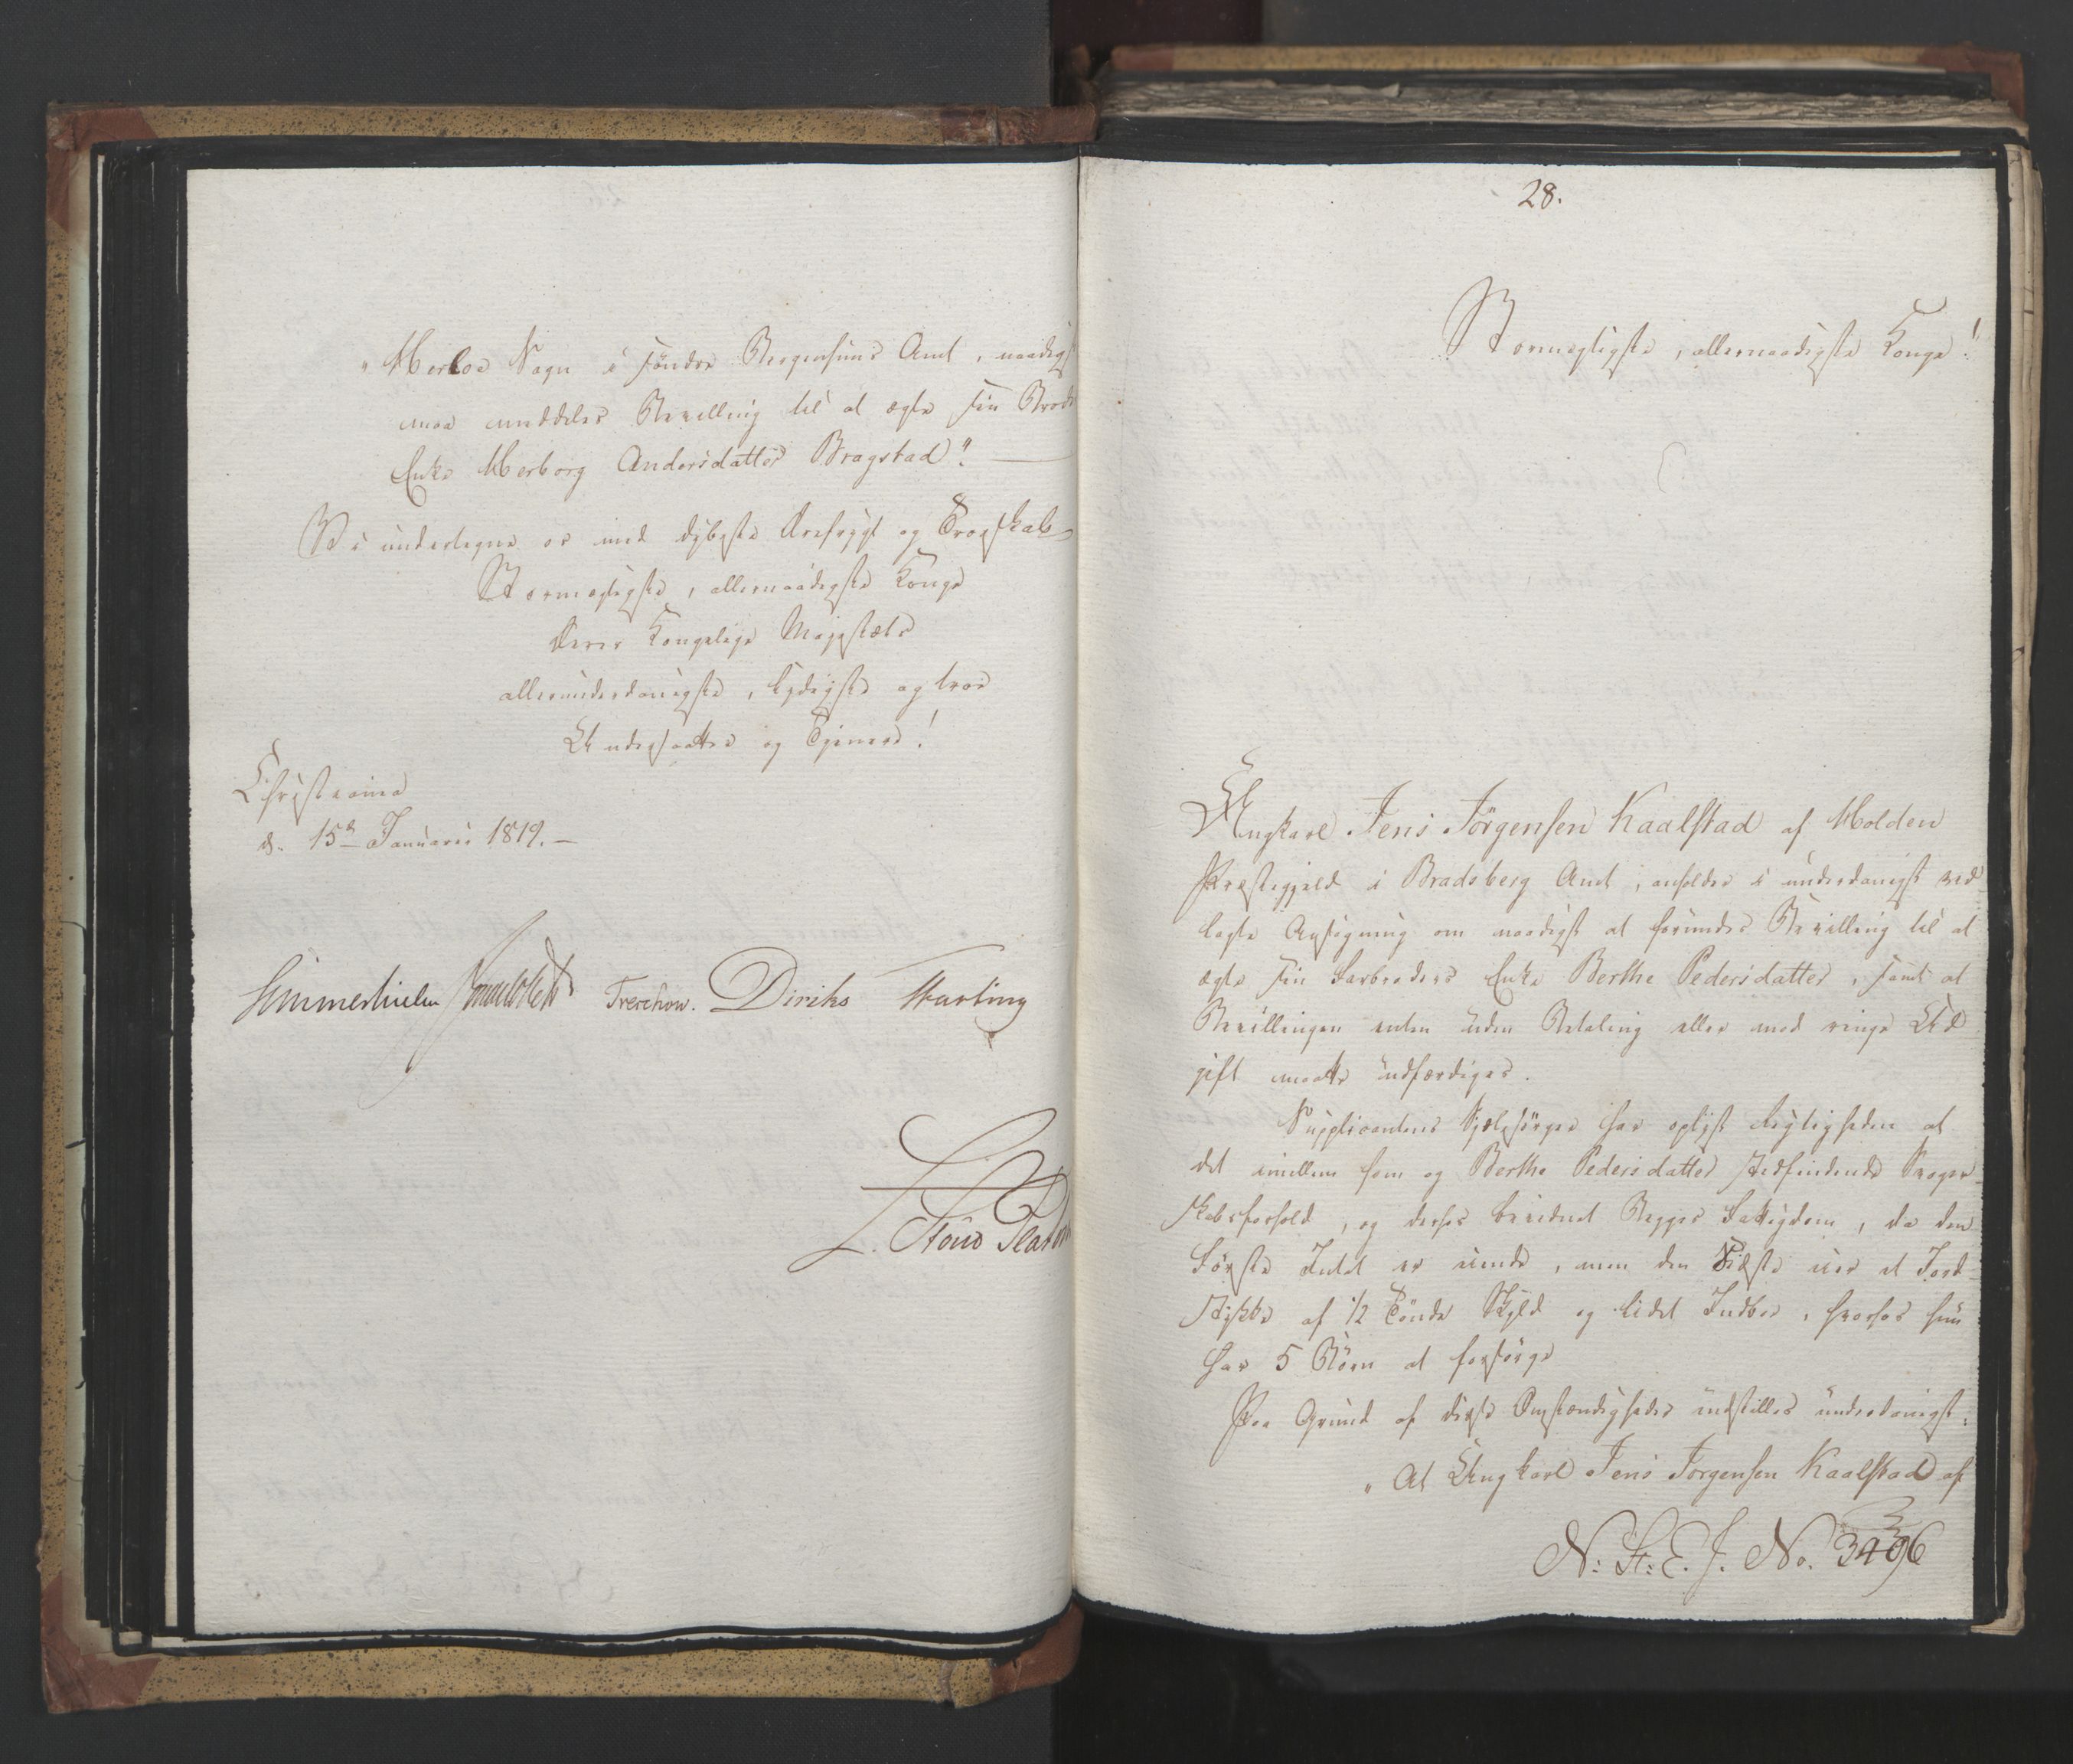 „Herloe Sogn i søndre Bergenhuus Amt, naadigst
maa meddeles Bevilling til at ægte sin Broders
Enke Herborg Andersdatter Bragstad". —
Vi undertegne os med dybeste Ærefrygt og Troeskab
Stormægtigste, allernaadigste Konge
Deres Kongelige Majestæts
allerunderdanigste, lydigste og troe
Undersaatter og Tjenere!
Christiania
d. 15de Januarii 1819. —
Sommerhielm Treschow. Diriks Fasting
28.
Stormægtigste, allernaadigste Konge!
Ungkarl Jens Jörgensen Kaalstad af Holden
Præstegjeld i Bradsberg Amt, anholder i underdanigst ved
lagte Ansögning om naadigst at forundes Bevilling til at
ægte sin Farbroders Enke Berthe Pedersdatter, samt at
Bevillingen enten uden Betaling eller mod ringe Ud
gift maatte udfærdiges.
Supplicantens Sjælesörger har oplyst Rigtigheden af
det imellem ham og Berthe Pedersdatter stedfindende Svoger-
skabsforhold, og derhos bevidnet Begges Fattigdom, da den
Förste Intet er eiende, men den Sidste eier et Jord
stykke af 1/2 Tönde Skyld og lidet Indboe, hvorhos hun
har 5 Börn at forsörge
Paa Grund af disse Omstændigheder indstilles underdanigst:
„At Ungkarl Jens Jörgensen Kaalstad af
N: St: E. J. No. 3496